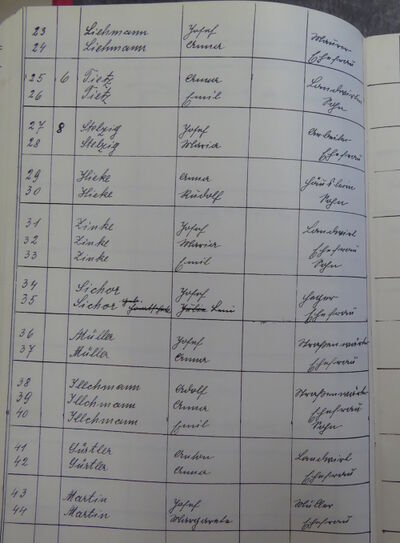 23 Liehmann Josef Maurer
24 Liehmann Anna Ehefrau
25 6 Tietz Anna Landwirtin
26 Tietz Emil Sohn
27 8 Stelzig Josef Arbeiter
28 Stelzig Maria Ehefrau
29 Hieke Anna Häuslerin
30 Hieke Rudolf Sohn
31 Zinke Josef Landwirt
32 Zinke Maria Ehefrau
33 Zinke Emil Sohn
34 Sichor Josef Heger
35 Sichor Leni Ehefrau
36 Müller Josef Straßenwärter
37 Müller Anna Ehefrau
38 Illchmann Adolf Straßenwärter
39 Illchmann Anna Ehefrau
40 Illchmann Emil Sohn
41 Gürtler Anton Landwirt
42 Gürtler Anna Ehefrau
43 Martin Josef Müller
44 Martin Margarete Ehefrau